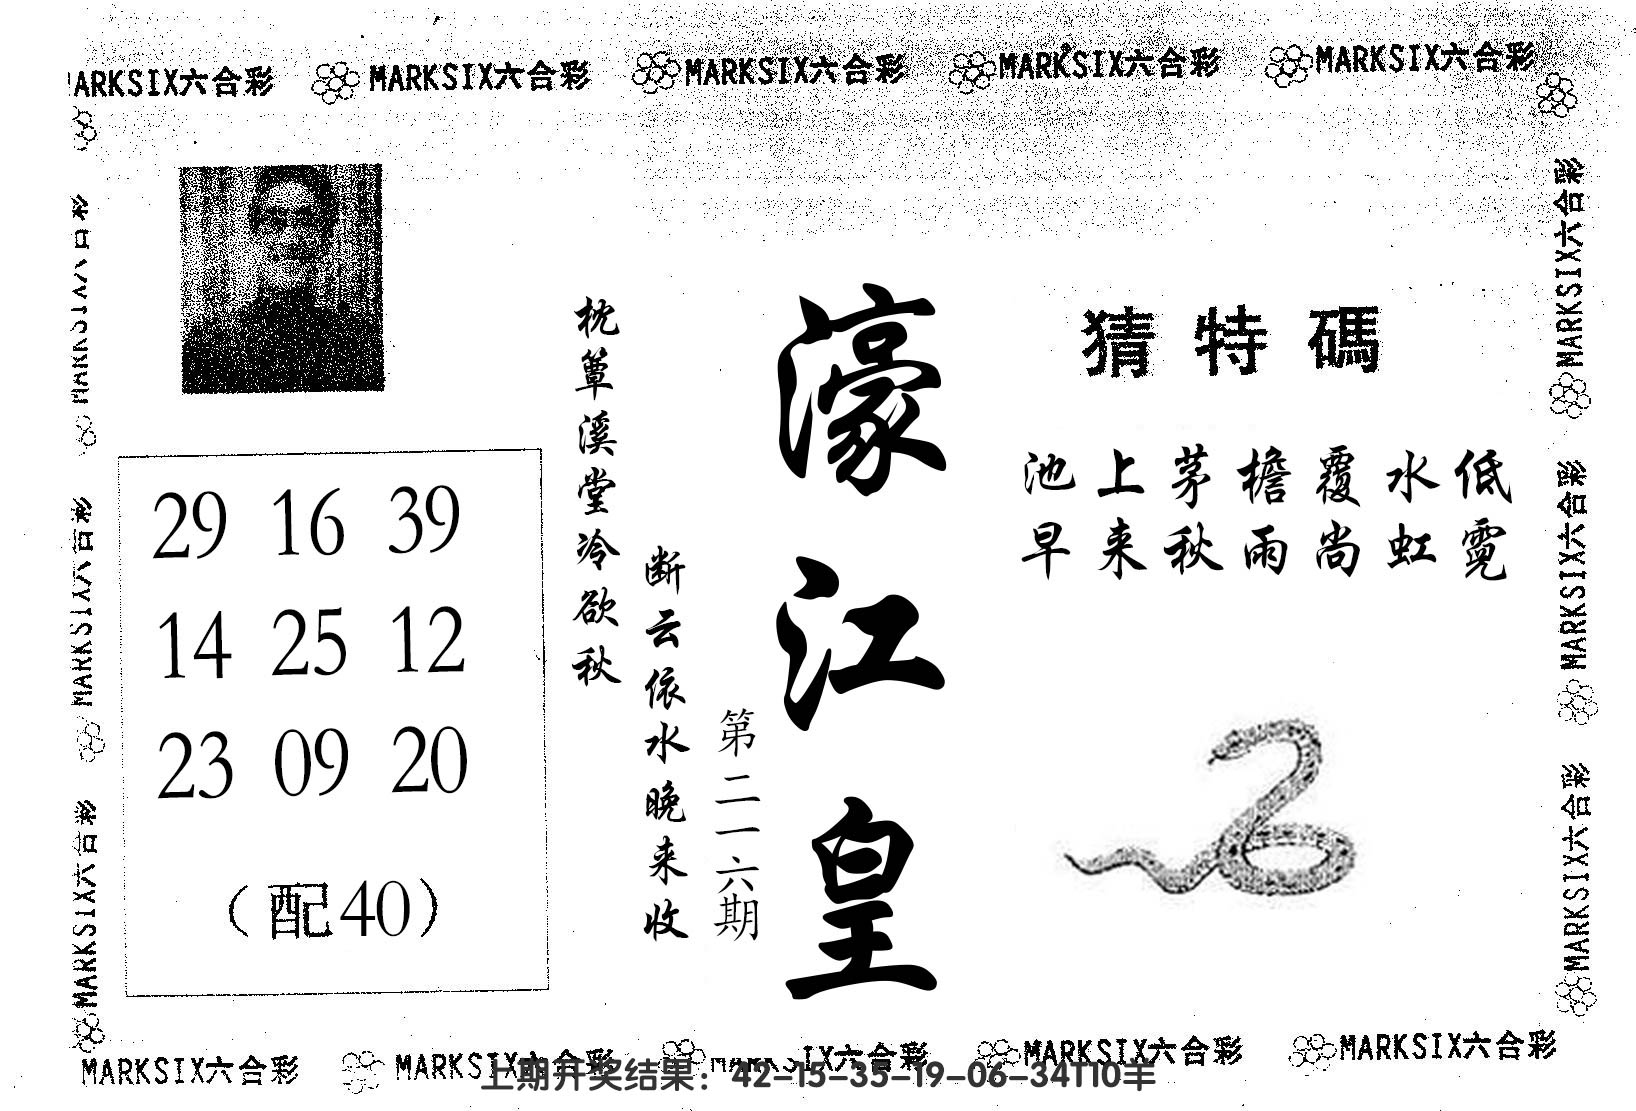 MARKSIX六合彩 MARKSIX六合彩 MARKSIX六合彩 MARKSIX六合彩 MARKSIX六合彩
猜特碼
池上茅檐覆水低
早来秋雨尚虹霓
濠江皇
第二一六期
断云依水晚来收
枕簟溪堂冷欲秋
29 16 39
14 25 12
23 09 20
（配40）
MARKSIX六合彩
MARKSIX六合彩
MARKSIX六合彩
MARKSIX六合彩
MARKSIX六合彩
MARKSIX六合彩
MARKSIX六合彩 MARKSIX六合彩 MARKSIX六合彩 MARKSIX六合彩 MARKSIX六合彩
上期开奖结果：42-15-35-19-06-34T10羊